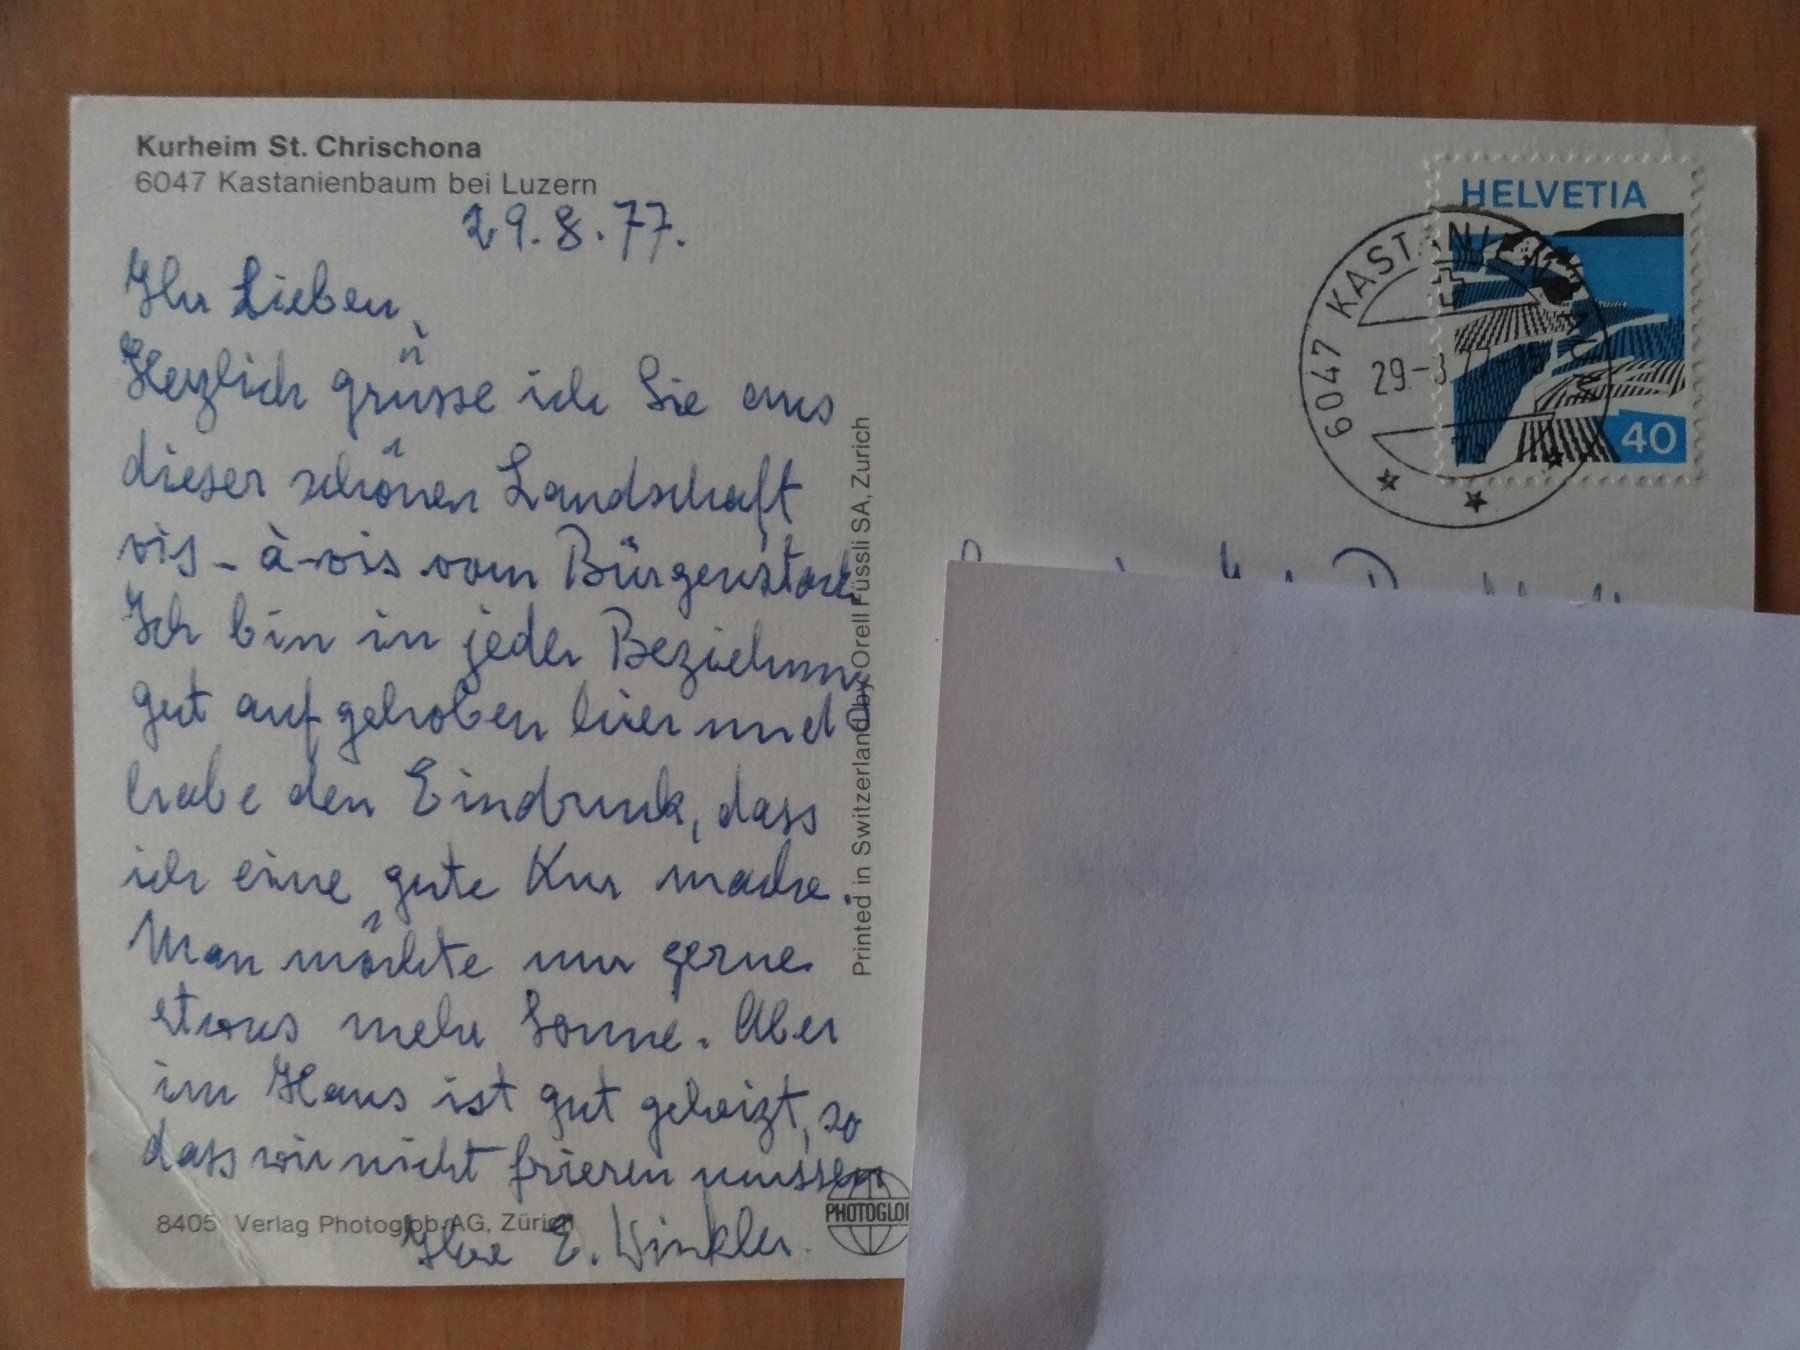 Kurheim St. Chrischona
6047 Kastanienbaum bei Luzern
29.8.77.
Ihr Lieben,
Herzlich grüsse ich Sie aus
dieser schönen Landschaft
vis-à-vis vom Bürgenstock
Ich bin in jeder Beziehung
gut aufgehoben hier und
habe den Eindruck, dass
ich eine gute Kur mache.
Man möchte nur gerne
etwas mehr Sonne. Aber
im Haus ist gut geheizt, so
dass wir nicht frieren müssen
Ihre E. Winkler.
8405 Verlag Photoglob AG, Zürich
PHOTOGLO
Printed in Switzerland by Orell Füssli SA, Zurich
HELVETIA
40
6047 KASTANIENBAUM
29.-8.77